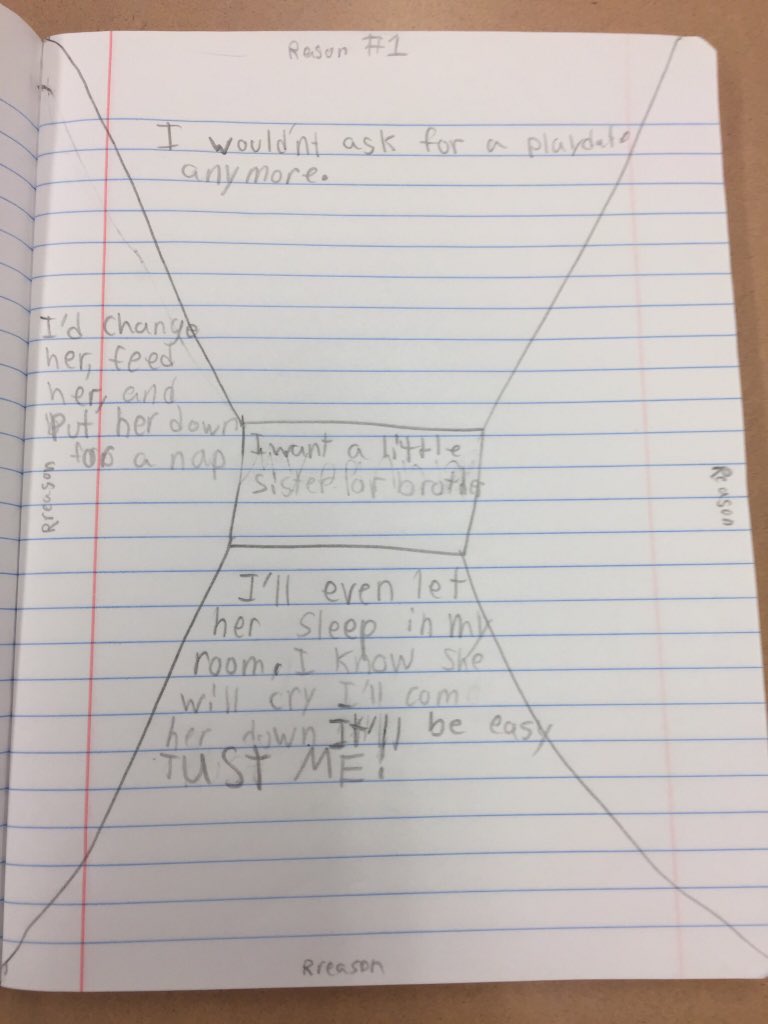 Reason #1
I would'nt ask for a playdate
anymore.
I'd change
her, feed
her, and
put her down
for a nap
Rreason
I want a little
sister or brother
Reason
I'll even let
her sleep in my
room, I know she
will cry I'll com
her down It'll be easy
TUST ME!
Rreason